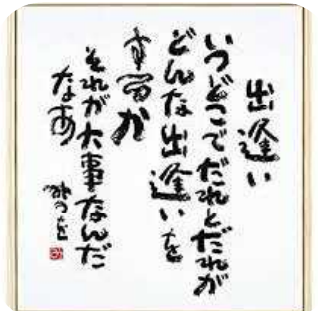 出逢い
いつどこでだれとだれが
どんな出逢いを
するか
それが大事なんだ
なあ